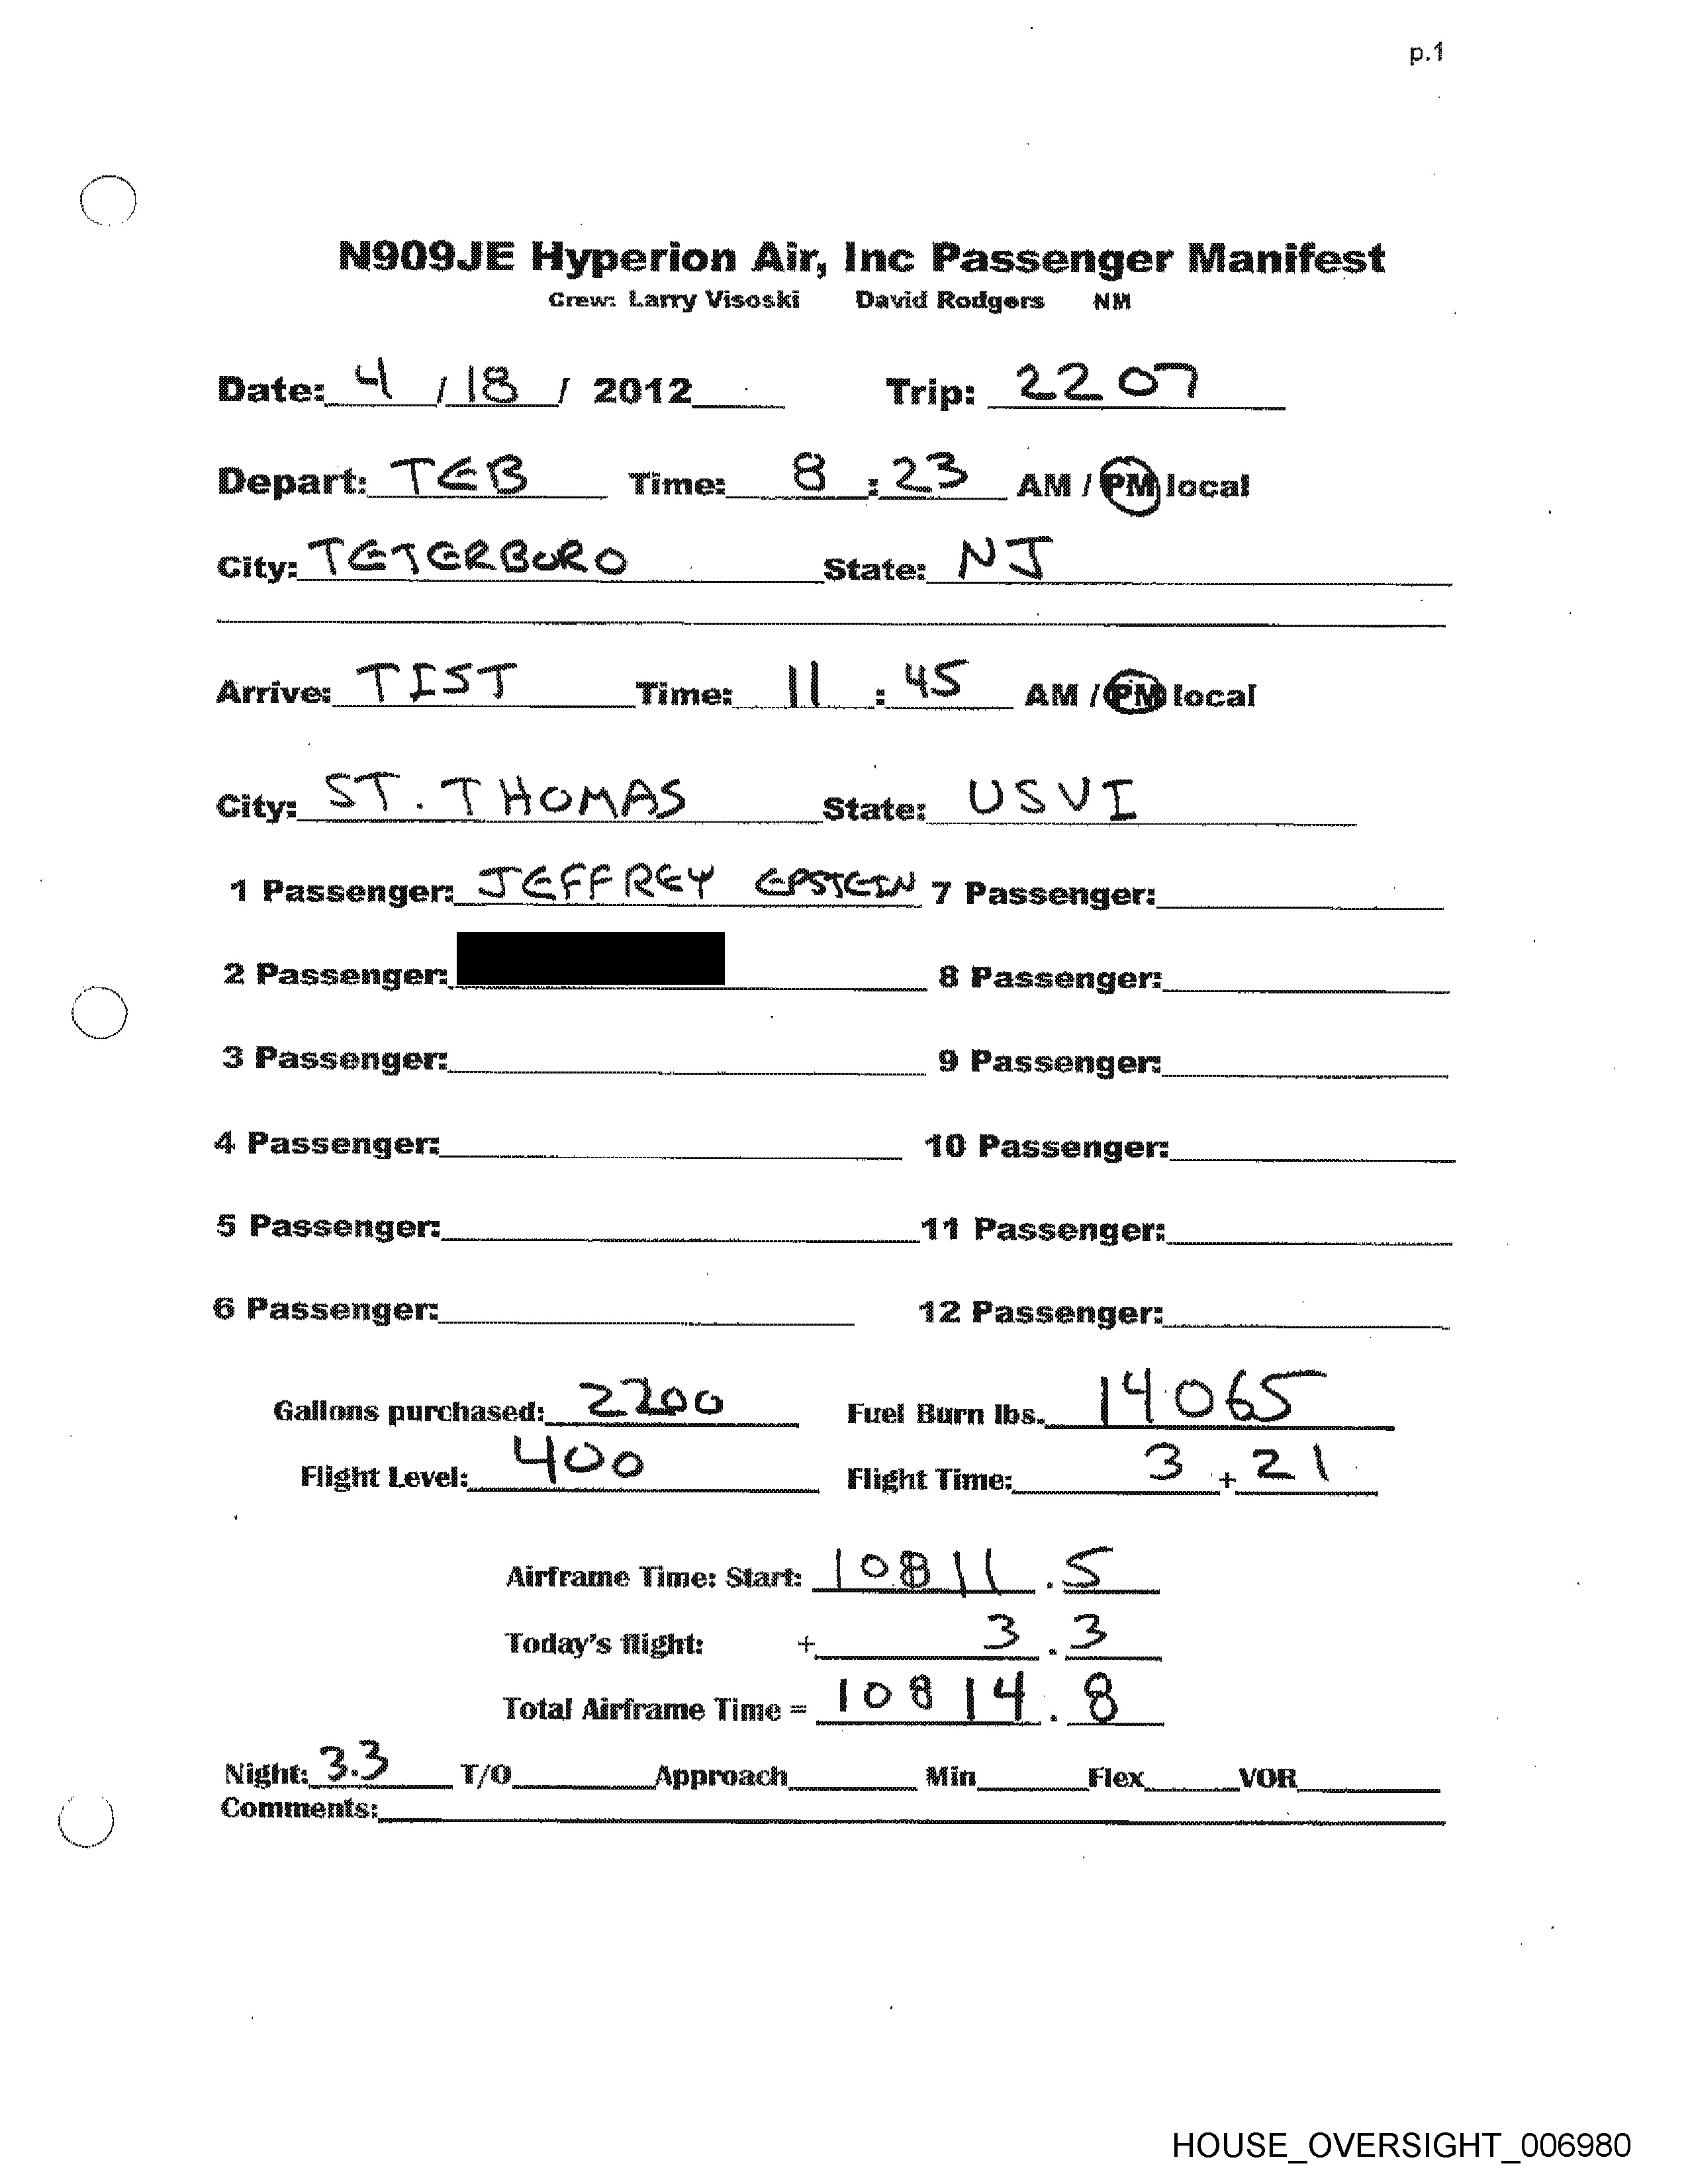 p.1
N909JE Hyperion Air, Inc Passenger Manifest
Crew: Larry Visoski David Rodgers NM
Date: 4 / 18 / 2012 Trip: 2207
Depart: TEB Time: 8 : 23 AM / PM local
City: TETERBORO State: NJ
Arrive: TIST Time: 11 : 45 AM / PM local
City: ST. THOMAS State: USVI
1 Passenger: JEFFREY EPSTEIN 7 Passenger:
2 Passenger: 8 Passenger:
3 Passenger: 9 Passenger:
4 Passenger: 10 Passenger:
5 Passenger: 11 Passenger:
6 Passenger: 12 Passenger:
Gallons purchased: 2200 Fuel Burn lbs. 14065
Flight Level: 400 Flight Time: 3 + 21
Airframe Time: Start: 10811 . 5
Today's flight: + 3 . 3
Total Airframe Time = 10814 . 8
Night: 3.3 T/O Approach Min Flex VOR
Comments:
HOUSE_OVERSIGHT_006980